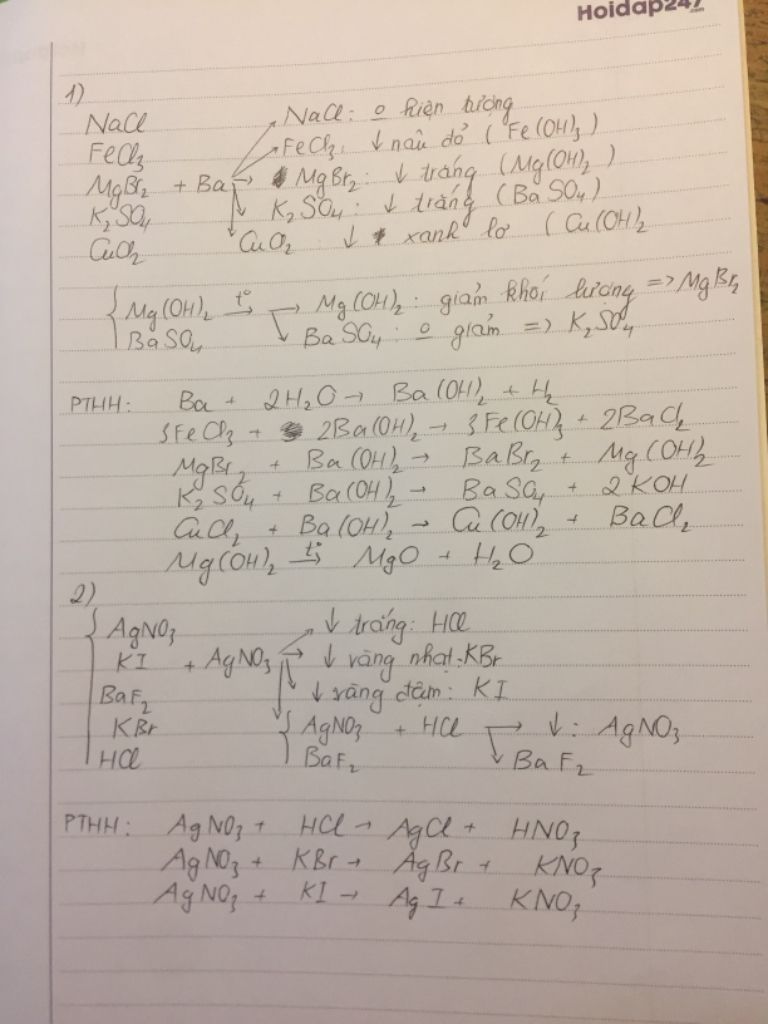 Hoidap247.com
1)
NaCl
FeCl3
MgBr2 + Ba
K2SO4
CuCl2
NaCl: o hiện tượng
FeCl3: ↓ nâu đỏ (Fe(OH)3)
MgBr2: ↓ trắng (Mg(OH)2)
K2SO4: ↓ trắng (BaSO4)
CuCl2: ↓ xanh lơ (Cu(OH)2
Mg(OH)2 t° → Mg(OH)2: giảm khối lượng => MgBr2
BaSO4 ↘ BaSO4: o giảm => K2SO4
PTHH: Ba + 2H2O → Ba(OH)2 + H2
3FeCl3 + 2Ba(OH)2 → 3Fe(OH)3 + 2BaCl2
MgBr2 + Ba(OH)2 → BaBr2 + Mg(OH)2
K2SO4 + Ba(OH)2 → BaSO4 + 2KOH
CuCl2 + Ba(OH)2 → Cu(OH)2 + BaCl2
Mg(OH)2 t° → MgO + H2O
2)
AgNO3
KI + AgNO3
BaF2
KBr
HCl
↓ trắng: HCl
↓ vàng nhạt: KBr
↓ vàng đậm: KI
AgNO3 + HCl → ↓: AgNO3
BaF2 ↘ BaF2
PTHH: AgNO3 + HCl → AgCl + HNO3
AgNO3 + KBr → AgBr + KNO3
AgNO3 + KI → AgI + KNO3